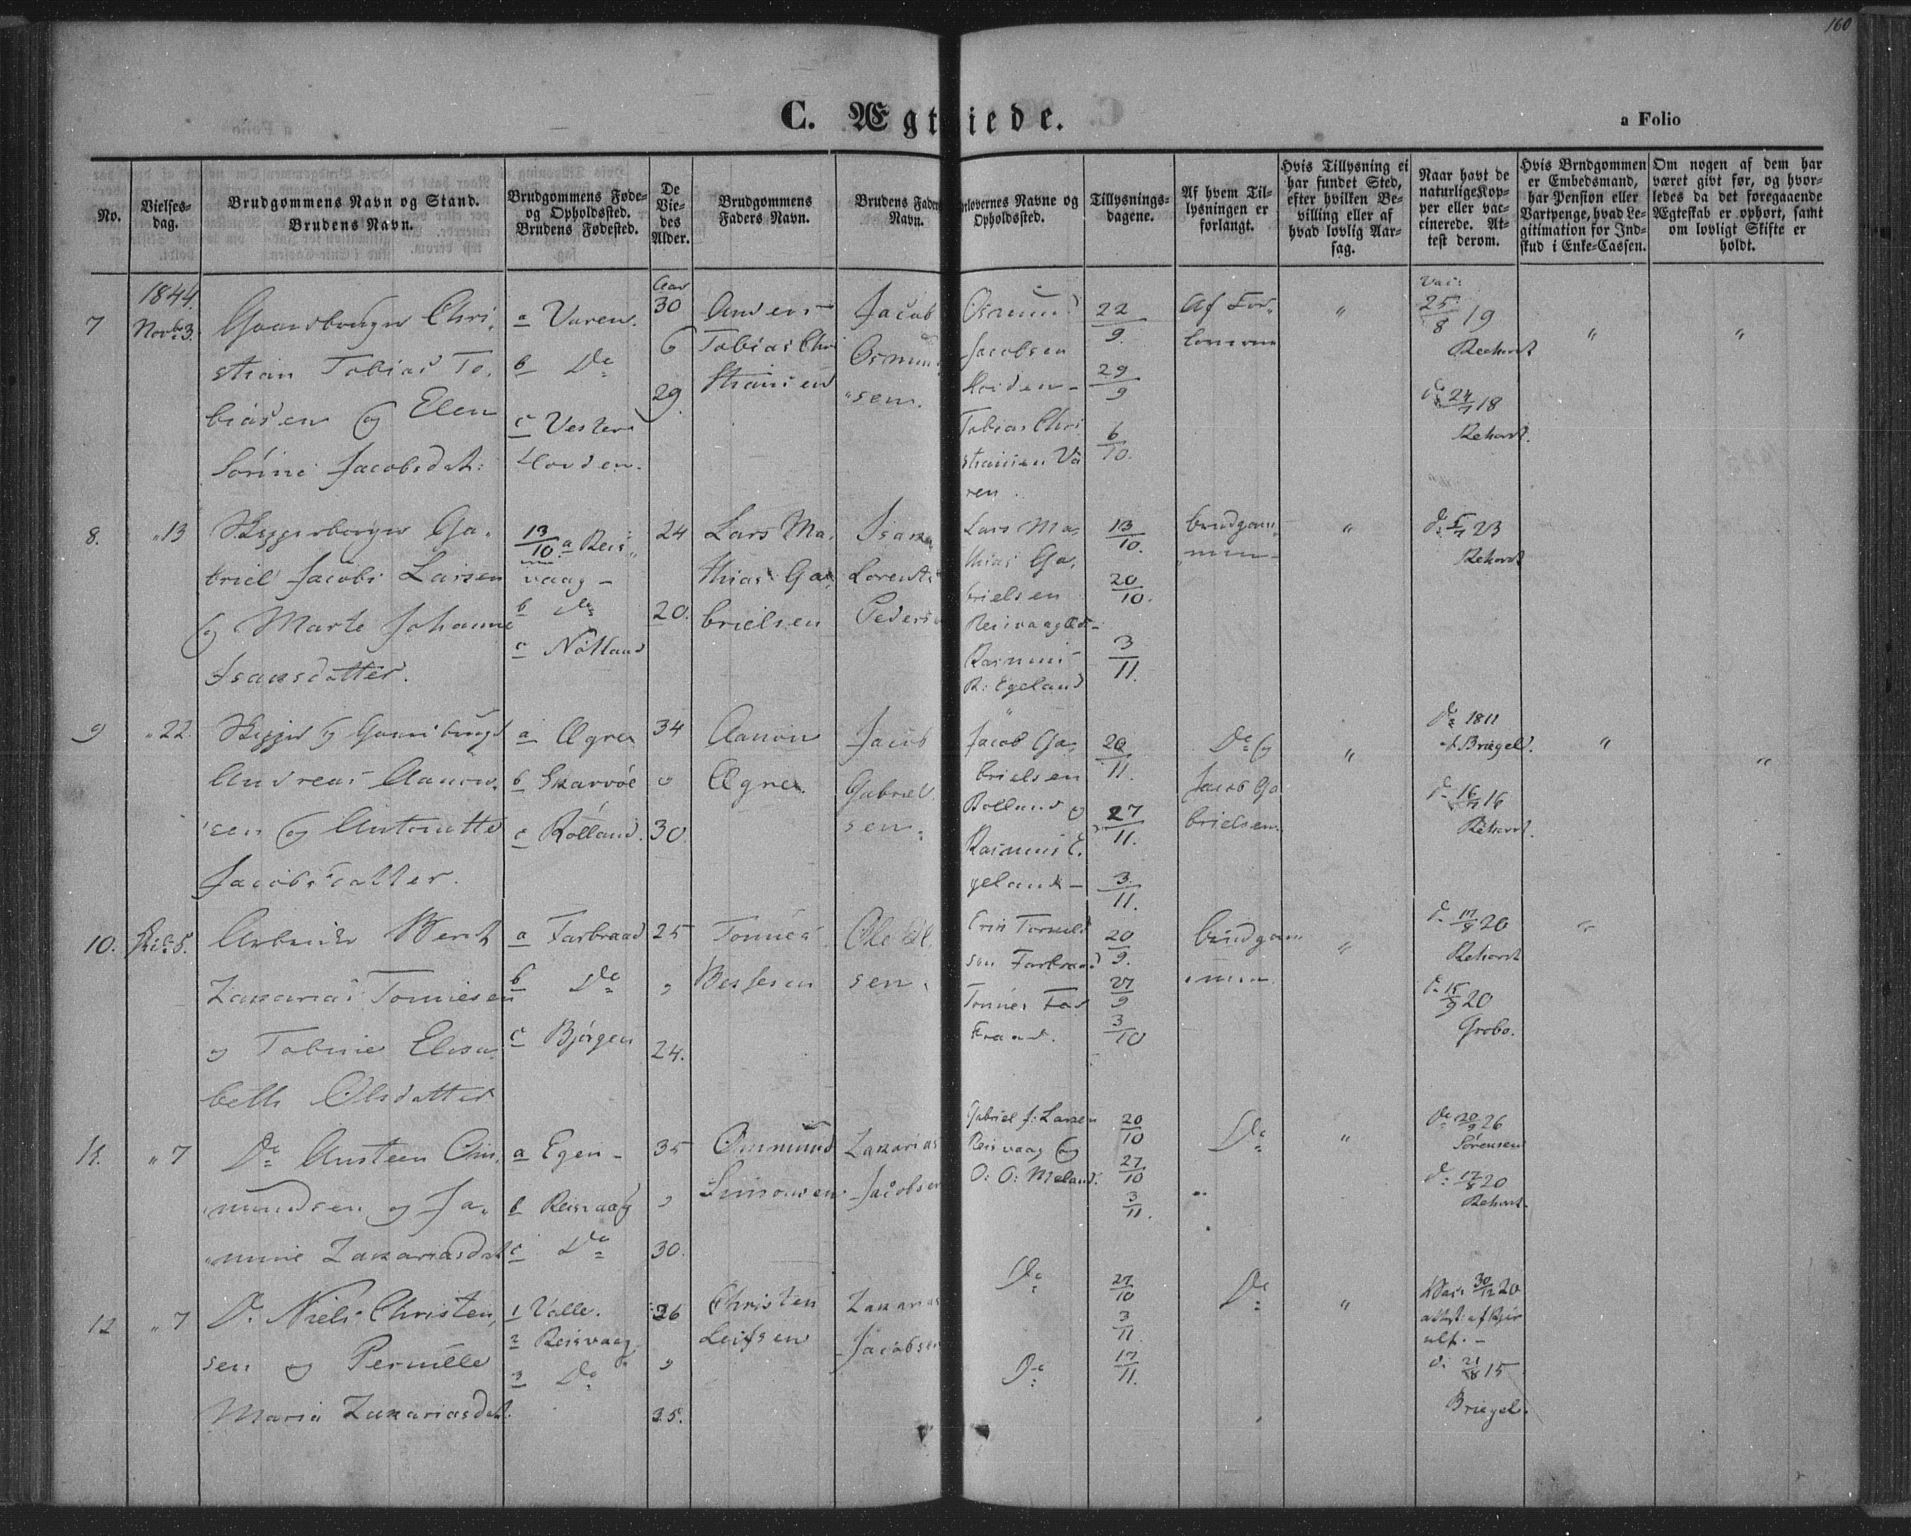 160
C. Ægteviede.
a Folio
No.
Vielses-
dag.
Brudgommens Navn og Stand.
Brudens Navn.
Brudgommens Føde-
og Opholdssted.
Brudens Fødested.
De
Vie-
des
Alder.
Brudgommens
Faders Navn.
Brudens Faders
Navn.
Forlovernes Navne og
Opholdssted.
Tillysnings-
dagene.
Af hvem Til-
lysningen er
forlangt.
Hvis Tillysning ei
har fundet Sted,
efter hvilken Be-
villing eller af
hvad lovlig Aar-
sag.
Naar havt de
naturlige Kop-
per eller vac-
cinerede. At-
test derom.
Hvis Brudgommen
er Embedsmand,
har Pension eller
Vartpenge, hvad Le-
gitimation for Ind-
skud i Enke-Cassen.
Om nogen af dem har
været givt før, og hvor-
ledes da det foregaaende
Ægteskab er ophørt, samt
om lovligt Skifte er
holdt.
7
1844
Novbr 3.
Gaardbruger Chri-
stian Tobias To-
biasen og Elen
Sørine Jacobsdat:
a Varen.
b Do
c Vester
Hovden.
Aar
30
6
29.
Anders
Tobias Chri
stiansen
Jacob
Osmun
sen.
Osmund
Jacobsen
Hovden
Tobias Chri
stiansen Va
ren.
22/9.
29/9
6/10.
Af For-
loverne
"
Vac:
25/8 19
Rehordt
do 24/7 18
Rehordt.
"
"
8.
" 13
Skipperborger Ga-
briel Jacobs Larsen
og Marte Johanne
Isaksdatter.
13/10 a Reis
vaag -
b Do
c Nøtland
24
20.
Lars Ma-
thias Ga-
brielsen
Isak
Lorents
Peders
Lars Ma-
thias Ga-
brielsen
Reisvaag
Rasmus
R: Egeland
13/10.
20/10.
3/11.
brudgom-
men -
"
do 5/7 23
Rehordt
9
" 22
Skipper og Gaardbruger
Andreas Aanon-
sen og Antonette
Jacobsdatter.
a Ægre
b Skarvøe
c Rølland.
34
"
30
Aanon
Ægre.
Jacob
Gabriel
sen.
Jacob Ga-
brielsen
Rølland og
Rasmus E-
geland -
20/11.
27/11.
3/11.
Do og
Jacob Ga
brielsen.
"
Do 1811
af Briegel.
do 16/7 16
Rehordt.
"
"
10.
Arbeider Bernt
Zakarias Tonnesen
og Tobine Elisa-
beth Olsdatter
a Farbraad
b Do
c Bjørgen
25
"
24.
Tonnes
Berntsen
Ole Ol
sen.
Farbraad
Tonnes Far
braad.
20/9.
27/9
3/10
brudgom
men.
"
do 17/8 20
Rehordt
do 15/9 20
Grobo.
"
11.
" 7
Do Austeen Om-
mundsen og Ja-
mine Zakariasdat
a Egen -
b Reisvaag
c Do
35
"
30.
Ommund
Simonsen
Zakarias
Jacobsen
Gabriel J: Larsen
Reisvaag og
O: O: Meland.
20/10
27/10
3/11.
Do
"
Do 20/9 26
Sørensen
do 17/8 20
Rehordt
12
" 7
Do Niels Christen-
sen og Pernille
Maria Zakariasdat.
1 Valle.
2 Reisvaag
3 Do
26
"
35.
Christen
Leifsen
Zakarias
Jacobsen
Do
Do
27/10
3/11
17/11.
Do
"
Vac: 30/12 20
attest af
do 21/8 15
Briegel.